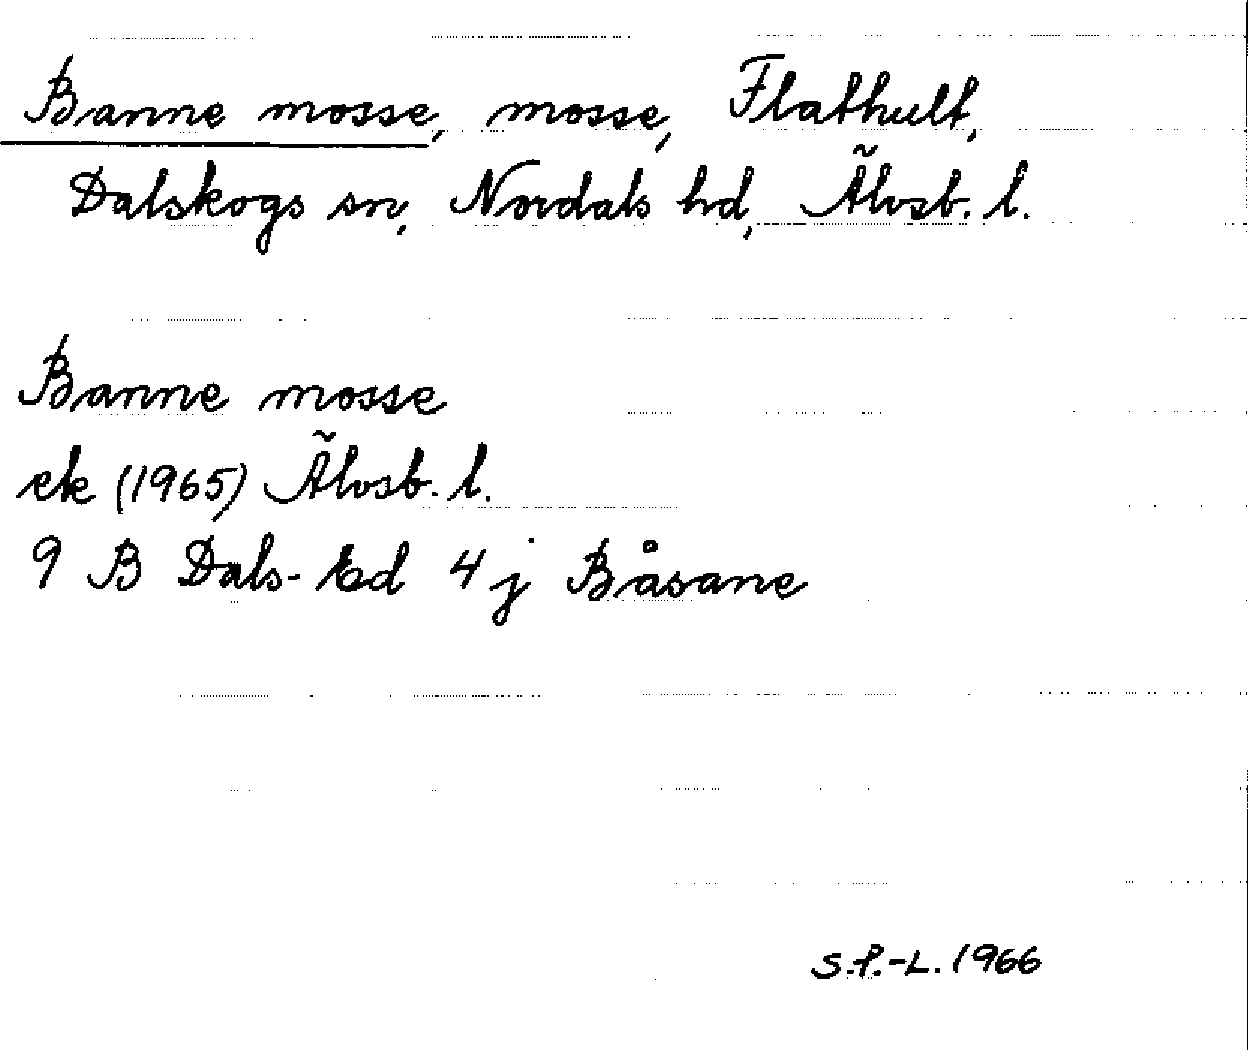 Banne mosse, mosse, Flathult,
Dalskogs sn, Nordals hd, Älvsb. l.
Banne mosse
ek (1965) Älvsb. l.
9 B Dals-Ed 4 j Båsane
S.P.-L. 1966